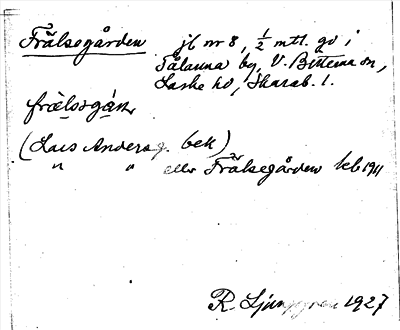 Frälsegården jb nr 8, 1/2 mtl. gd i
Tålanna by, V. Bitterna sn,
Laske hd, Skarab. l.
frälsgán
(Lars Andersg. bek)
" " eller Frälsegården kb 1911
R. Ljunggren 1927